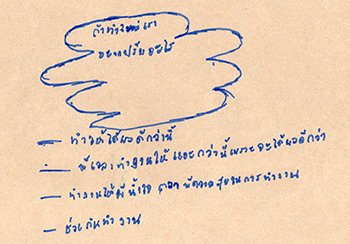 ถ้าทำใหม่เรา
อยากปรับอะไร
— ทำให้ได้ผลดีกว่านี้
— มีเวลาทำงานให้เยอะกว่านี้เพราะจะได้ผลดีกว่า
— ทำงานให้มี มีความสุขในการทำงาน
— ช่วยกันทำงาน